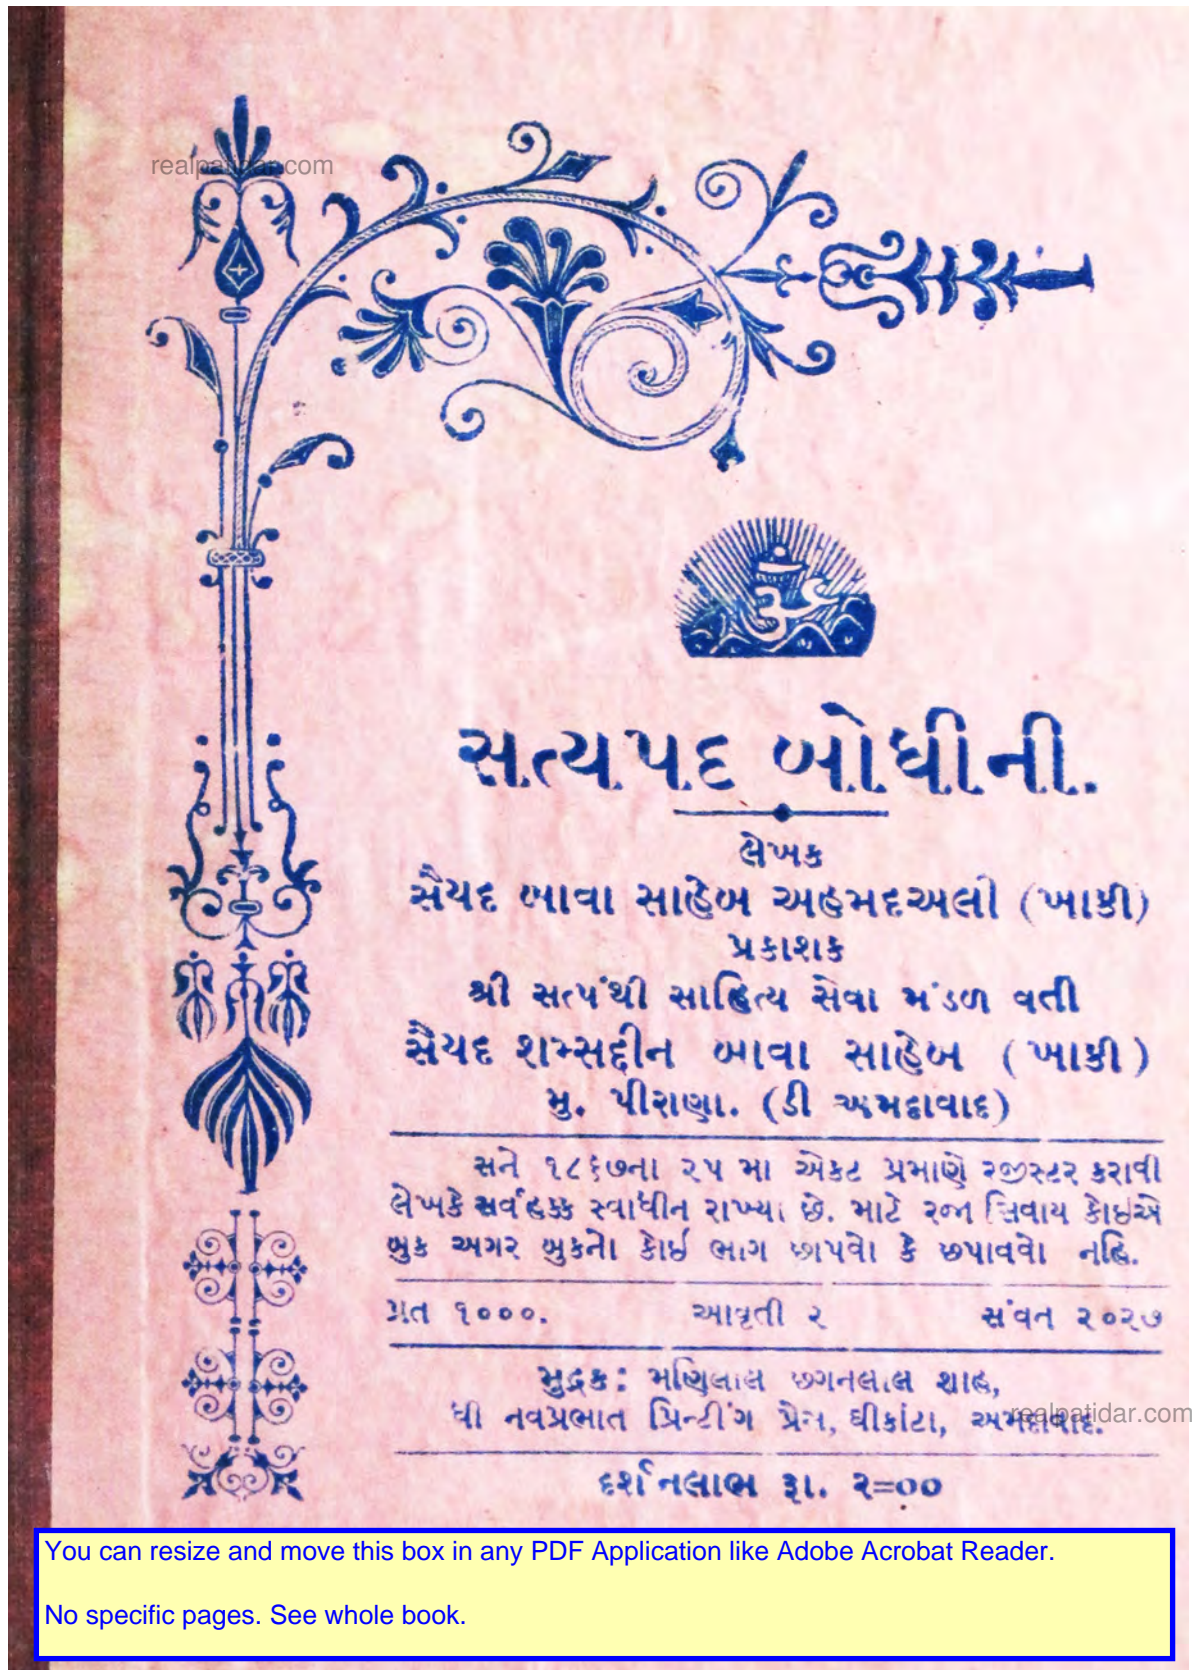 realpatidar.com
ૐ
સત્યપદ બોધીની.
લેખક
સૈયદ બાવા સાહેબ અહમદઅલી (ખાકી)
પ્રકાશક
શ્રી સત્પંથી સાહિત્ય સેવા મંડળ વતી
સૈયદ શમ્સદ્દીન બાવા સાહેબ (ખાકી)
મુ. પીરાણા. (ડી અમદાવાદ)
સને ૧૮૬૭ના ૨૫ મા એકટ પ્રમાણે રજીસ્ટર કરાવી
લેખકે સર્વહક્ક સ્વાધીન રાખ્યા છે. માટે રજા સિવાય કોઇએ
બુક અગર બુકનો કોઇ ભાગ છાપવો કે છપાવવો નહિ.
પ્રત ૧૦૦૦. આવૃતી ૨ સંવત ૨૦૨૭
મુદ્રક: મણિલાલ છગનલાલ શાહ,
ધી નવપ્રભાત પ્રિન્ટીંગ પ્રેસ, ઘીકાંટા, અમદાવાદ.
realpatidar.com
દર્શનલાભ રૂા. ૨=૦૦
You can resize and move this box in any PDF Application like Adobe Acrobat Reader.
No specific pages. See whole book.